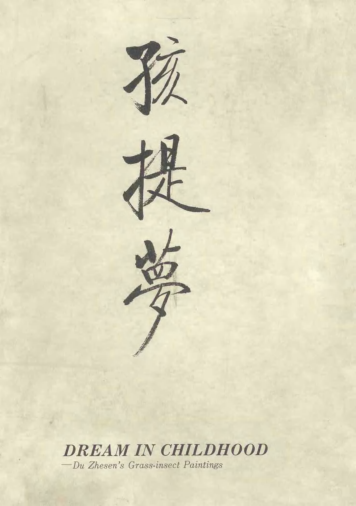 孩提夢
DREAM IN CHILDHOOD
—Du Zhesen's Grass-insect Paintings